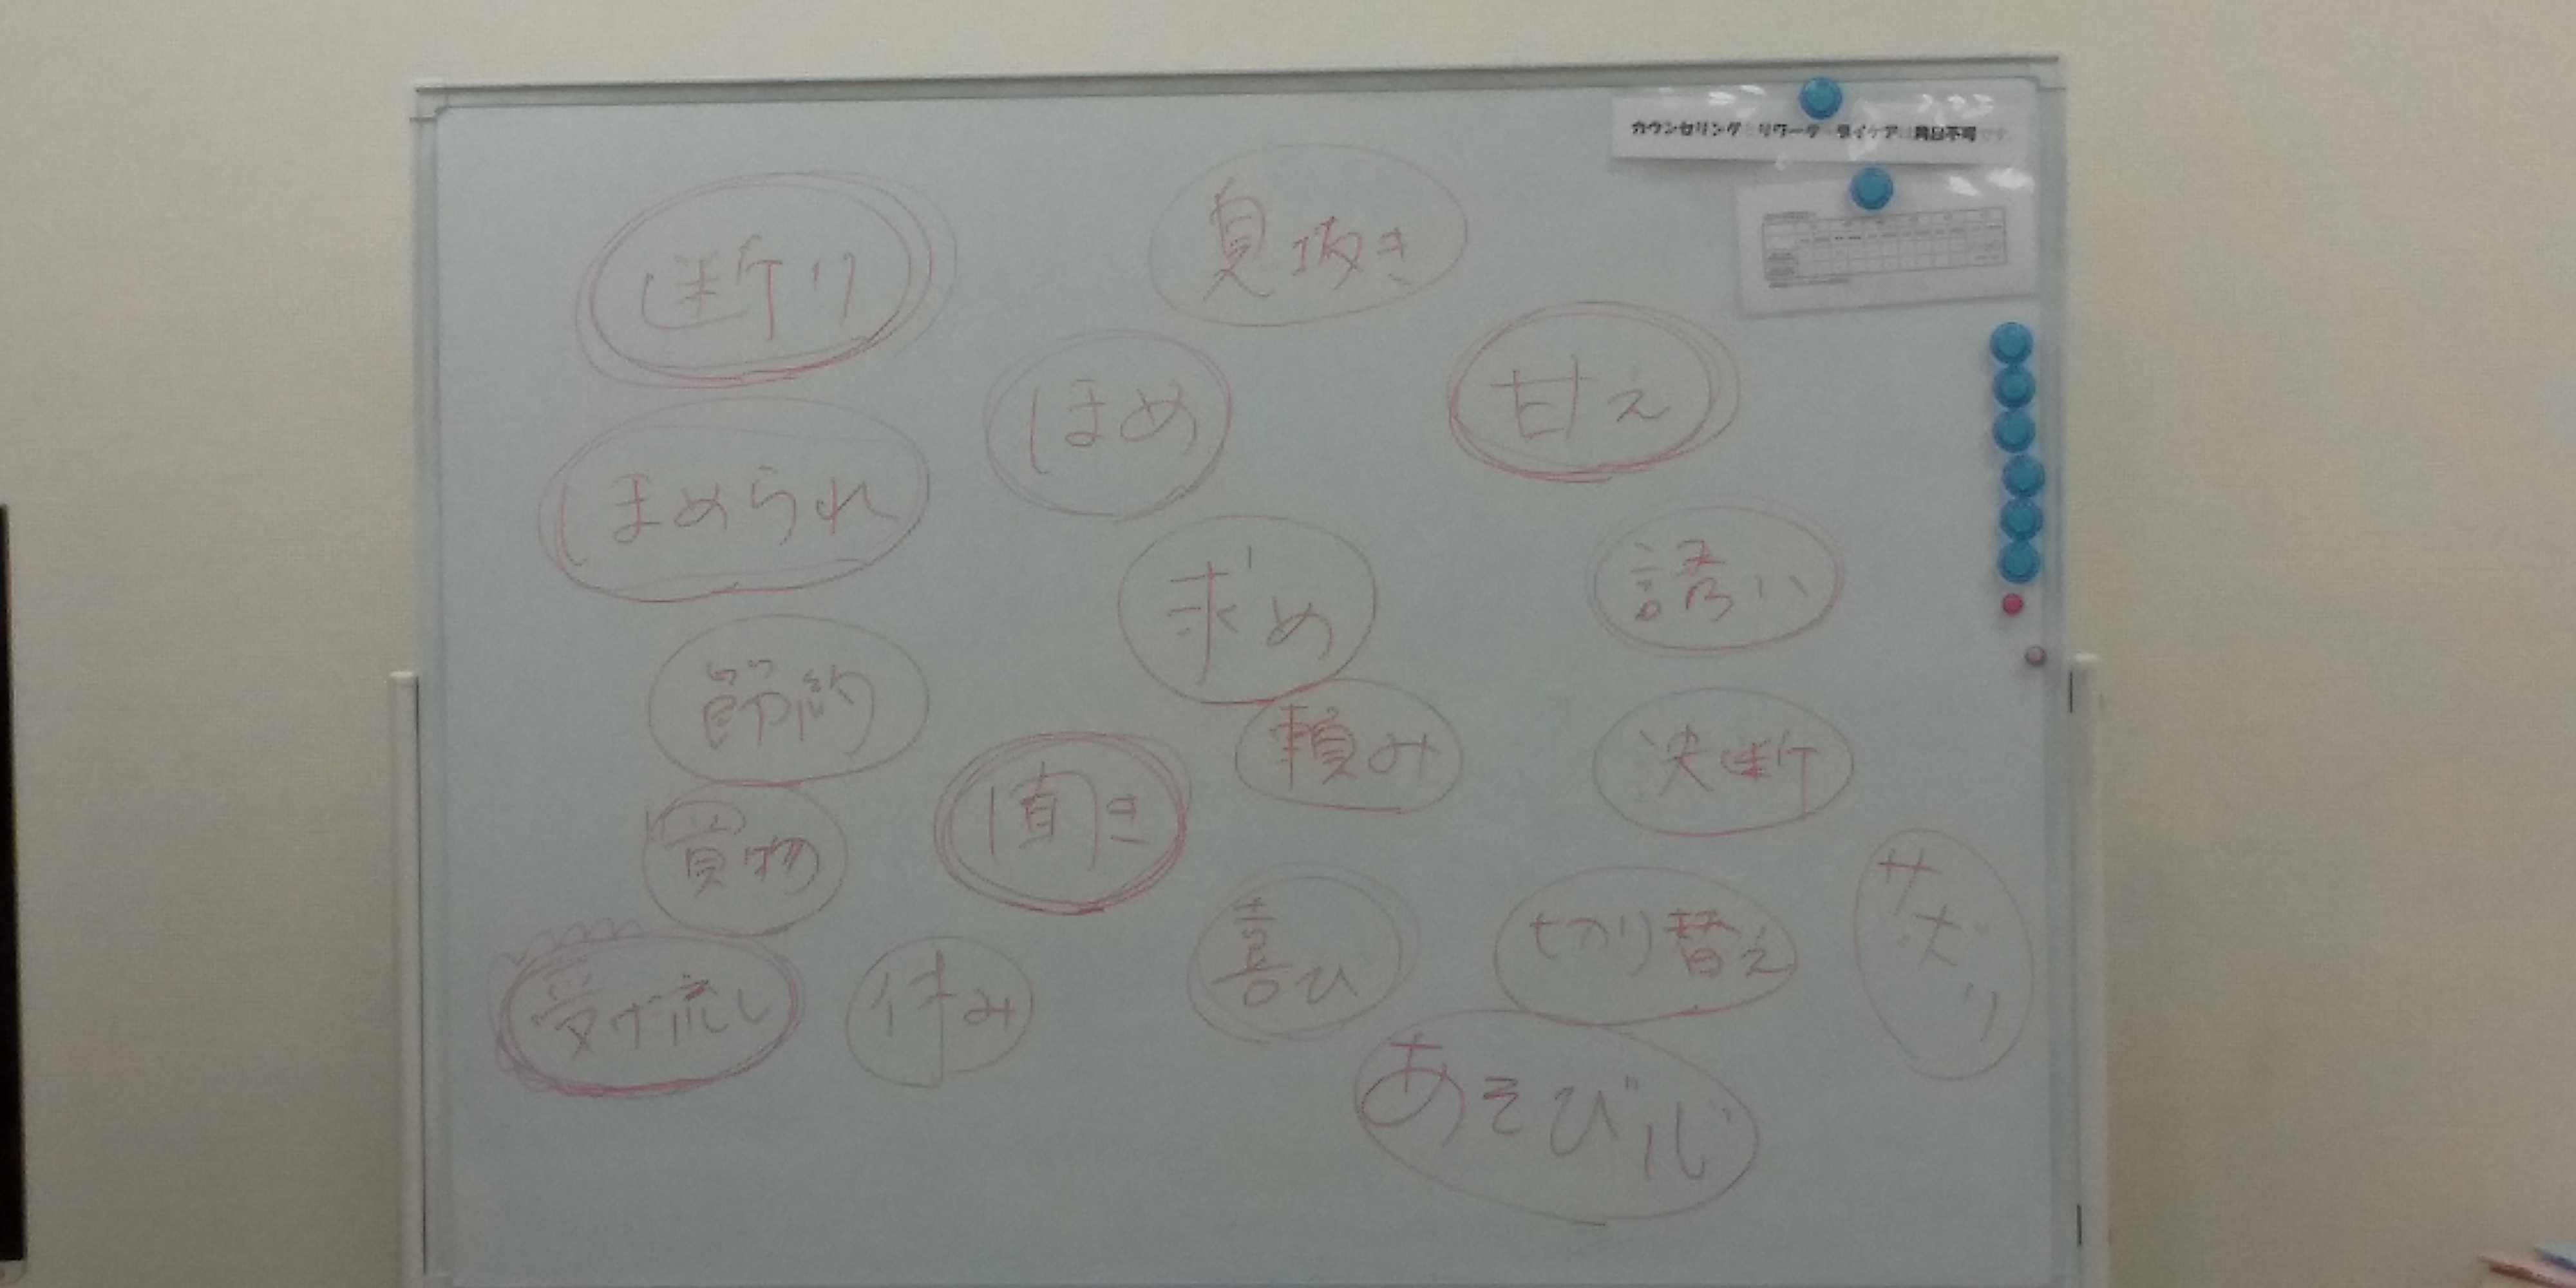 カウンセリングとリワークデイケアは同日不可です
断り
息抜き
ほめ
甘え
ほめられ
求め
誘い
節約
頼み
決断
買物
聞き
サボり
喜び
切り替え
受け流し
休み
あそび心